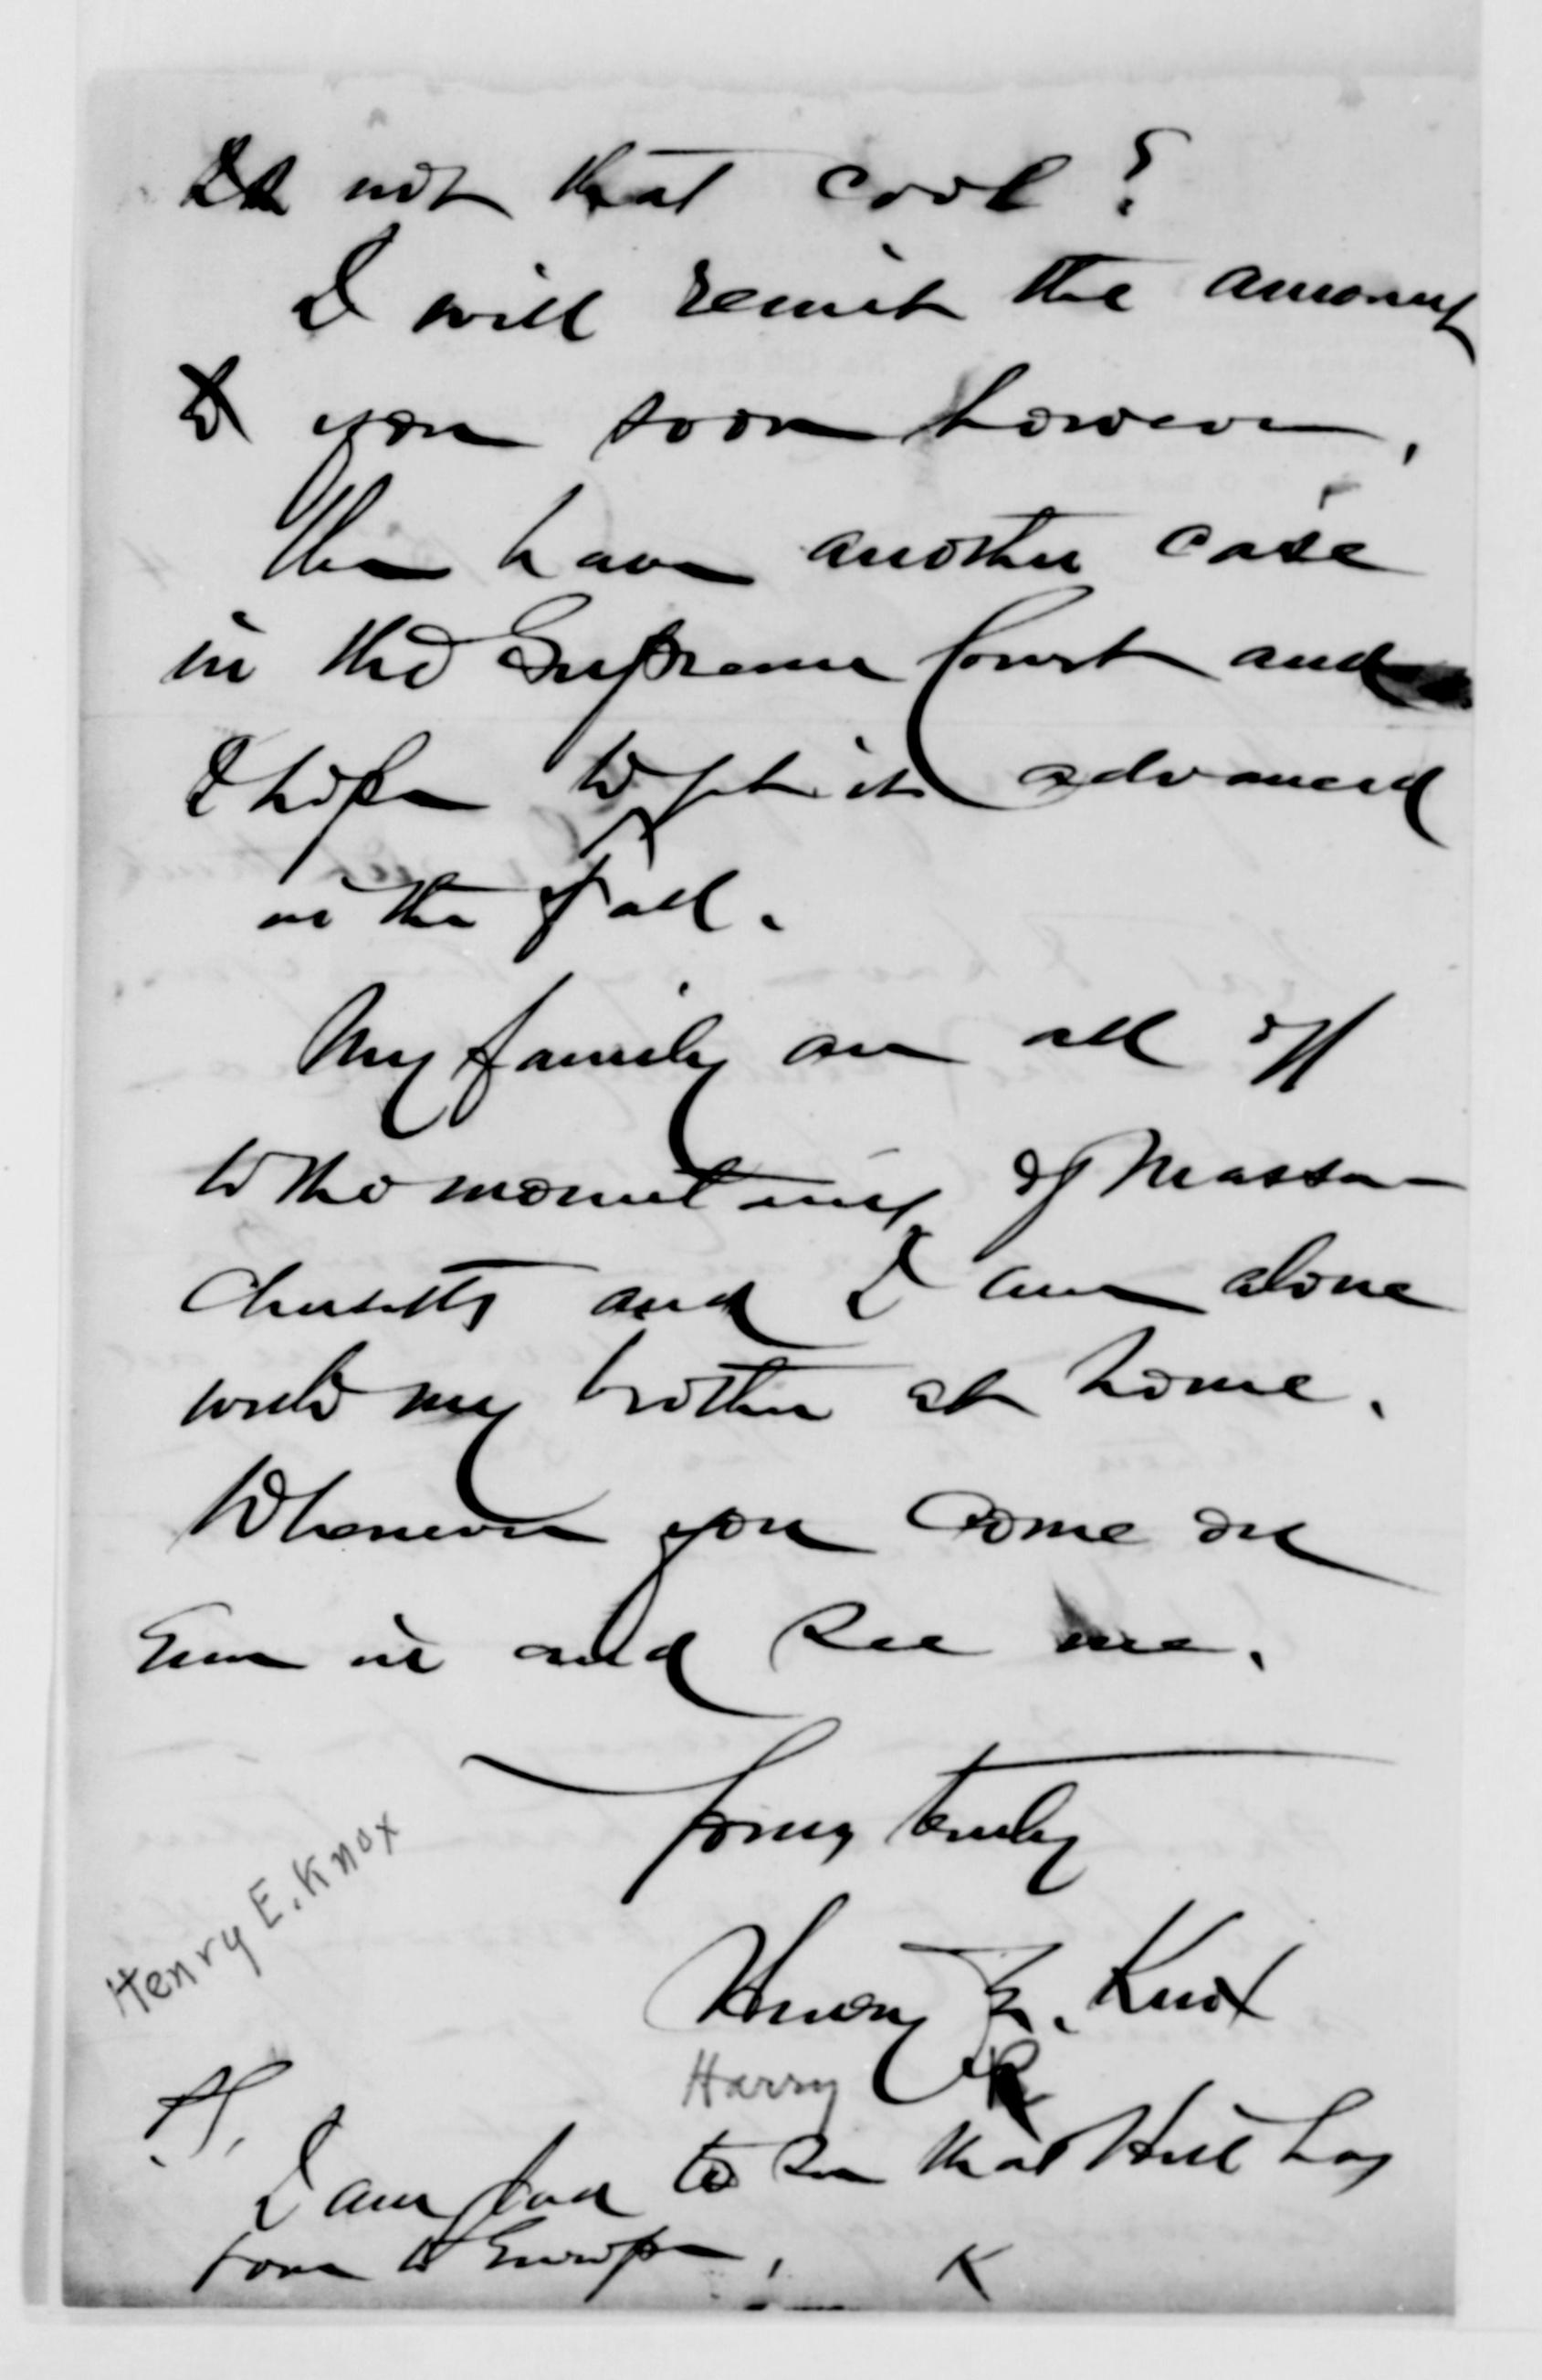 Is not that cool?
I will remit the amount
to you soon however.
We have another case
in the Supreme Court and
I hope to get it advanced
in the fall.
My family are all off
to the mountains of Massa-
chusetts and I am alone
with my brother at home.
Whenever you come on
run in and see me.
Yours truly
Henry E. Knox
Henry E. Knox
Harry
I am glad to see that Hill has
gone to Europe. K